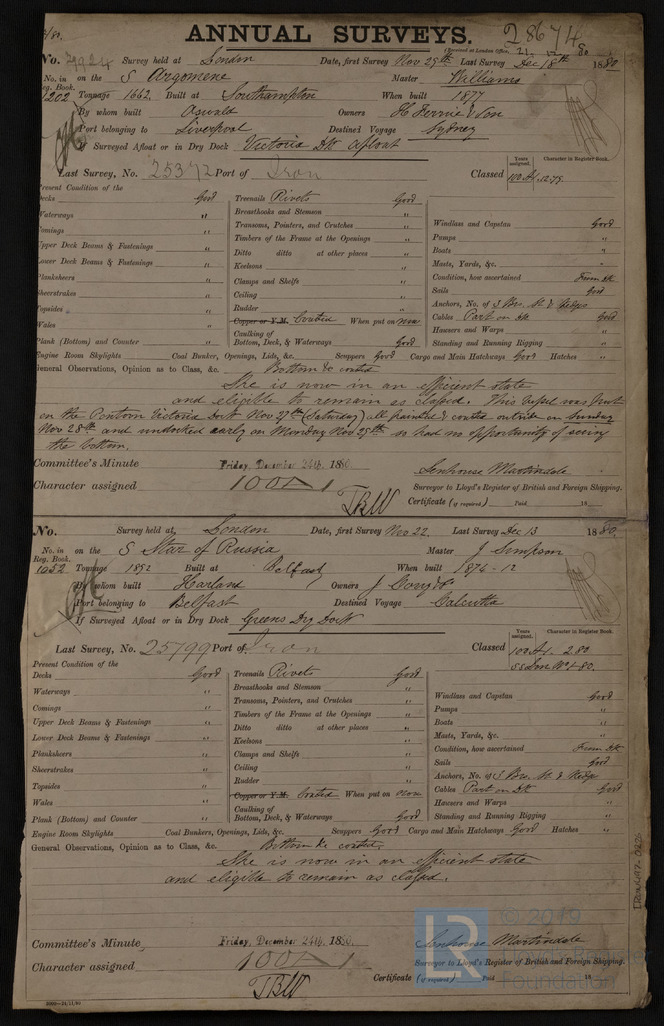 /80. ANNUAL SURVEYS. 28674
(Received at London Office, 21. 12 80
No. 7924 Survey held at London Date, first Survey Nov 25th Last Survey Dec 18th 1880
No. in on the S Argomene Master Williams
Reg. Book.
1202 Tonnage 1662. Built at Southampton When built 1877
By whom built Oswald Owners H Fernie & Son
Port belonging to Liverpool Destined Voyage Sydney
If Surveyed Afloat or in Dry Dock Victoria Dk Afloat
Years assigned. Character in Register Book.
Last Survey, No. 25372 Port of Iron Classed 100 A1. 12.79.
Present Condition of the
Decks Good Treenails Rivets Good
Waterways " Breasthooks and Stemson " Windlass and Capstan Good
Comings " Transoms, Pointers, and Crutches " Pumps "
Upper Deck Beams & Fastenings " Timbers of the Frame at the Openings " Boats "
Lower Deck Beams & Fastenings " Ditto ditto at other places " Masts, Yards, &c. "
Planksheers " Keelsons " Condition, how ascertained From Dk
Sheerstrakes " Clamps and Shelfs " Sails Good
Topsides " Ceiling " Anchors, No. of 3 Bro. St. & Kedges
Wales " Rudder " Cables Part on Dk Good
Copper or Y.M. Coated When put on now Hausers and Warps "
Plank (Bottom) and Counter " Caulking of Bottom, Deck, & Waterways Good Standing and Running Rigging "
Engine Room Skylights Coal Bunker, Openings, Lids, &c. Scuppers Good Cargo and Main Hatchways Good Hatches "
General Observations, Opinion as to Class, &c. Bottom &c coated
She is now in an efficient state
and eligible to remain as classed. This vessel was put
on the Pontoon Victoria Dock Nov 27th (Saturday) all painted & coated outside on Sunday
Nov 28th and undocked early on Monday Nov 29th so had no opportunity of seeing
the bottom.
Committee's Minute Friday, December 24th, 1880. Senhouse Martindale
Character assigned 100A1 Surveyor to Lloyd's Register of British and Foreign Shipping.
TBW Certificate (if required) Paid 18
No. Survey held at, London Date, first Survey Nov 22. Last Survey Dec 13 1880.
No. in on the S Star of Russia Master J Simpson
Reg. Book.
1032 Tonnage 1852 Built at Belfast When built 1874-12
By whom built Harland Owners J Corry & Co
Port belonging to Belfast Destined Voyage Calcutta
If Surveyed Afloat or in Dry Dock Greens Dry Dock
Years assigned. Character in Register Book.
Last Survey, No. 25199 Port of Iron Classed 100 A1. 2.80
SS Lon No 1-80.
Present Condition of the
Decks Good Treenails Rivets Good
Waterways " Breasthooks and Stemson " Windlass and Capstan Good
Comings " Transoms, Pointers, and Crutches " Pumps "
Upper Deck Beams & Fastenings " Timbers of the Frame at the Openings " Boats "
Lower Deck Beams & Fastenings " Ditto ditto at other places " Masts, Yards, &c. "
Planksheers " Keelsons " Condition, how ascertained From Dk
Sheerstrakes " Clamps and Shelfs " Sails Good
Topsides " Ceiling " Anchors, No. of 3 Bro. St. & Kedge
Wales " Rudder " Cables Part on Dk Good
Copper or Y.M. Coated When put on now Hausers and Warps "
Plank (Bottom) and Counter " Caulking of Bottom, Deck, & Waterways Good Standing and Running Rigging "
Engine Room Skylights Coal Bunkers, Openings, Lids, &c. Scuppers Good Cargo and Main Hatchways Good Hatches "
General Observations, Opinion as to Class, &c. Bottom &c coated
She is now in an efficient state
and eligible to remain as classed.
IRON497-0226
Committee's Minute Friday, December 24th, 1880. Senhouse Martindale
Character assigned 100A1 Surveyor to Lloyd's Register of British and Foreign Shipping.
TBW Certificate (if required) Paid 18
LR © 2019
Foundation